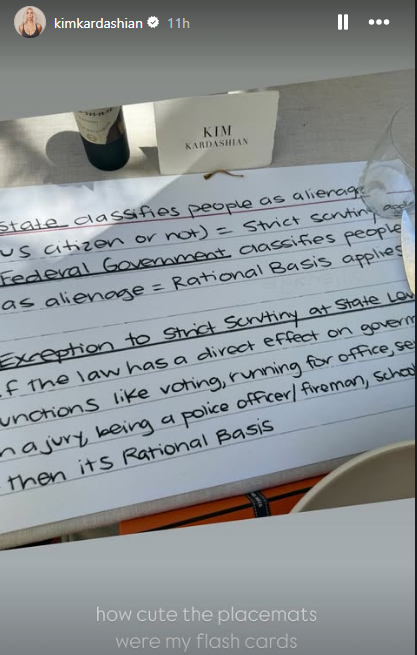 kimkardashian 11h
KIM
KARDASHIAN
State classifies people as alienage
US citizen or not) = Strict Scrutiny
Federal Government classifies people
as alienage = Rational Basis applies
Exception to Strict Scrutiny at State
f the law has a direct effect on
unctions like voting, running for office,
n a jury, being a police officer/fireman,
then its Rational Basis
how cute the placemats
were my flash cards